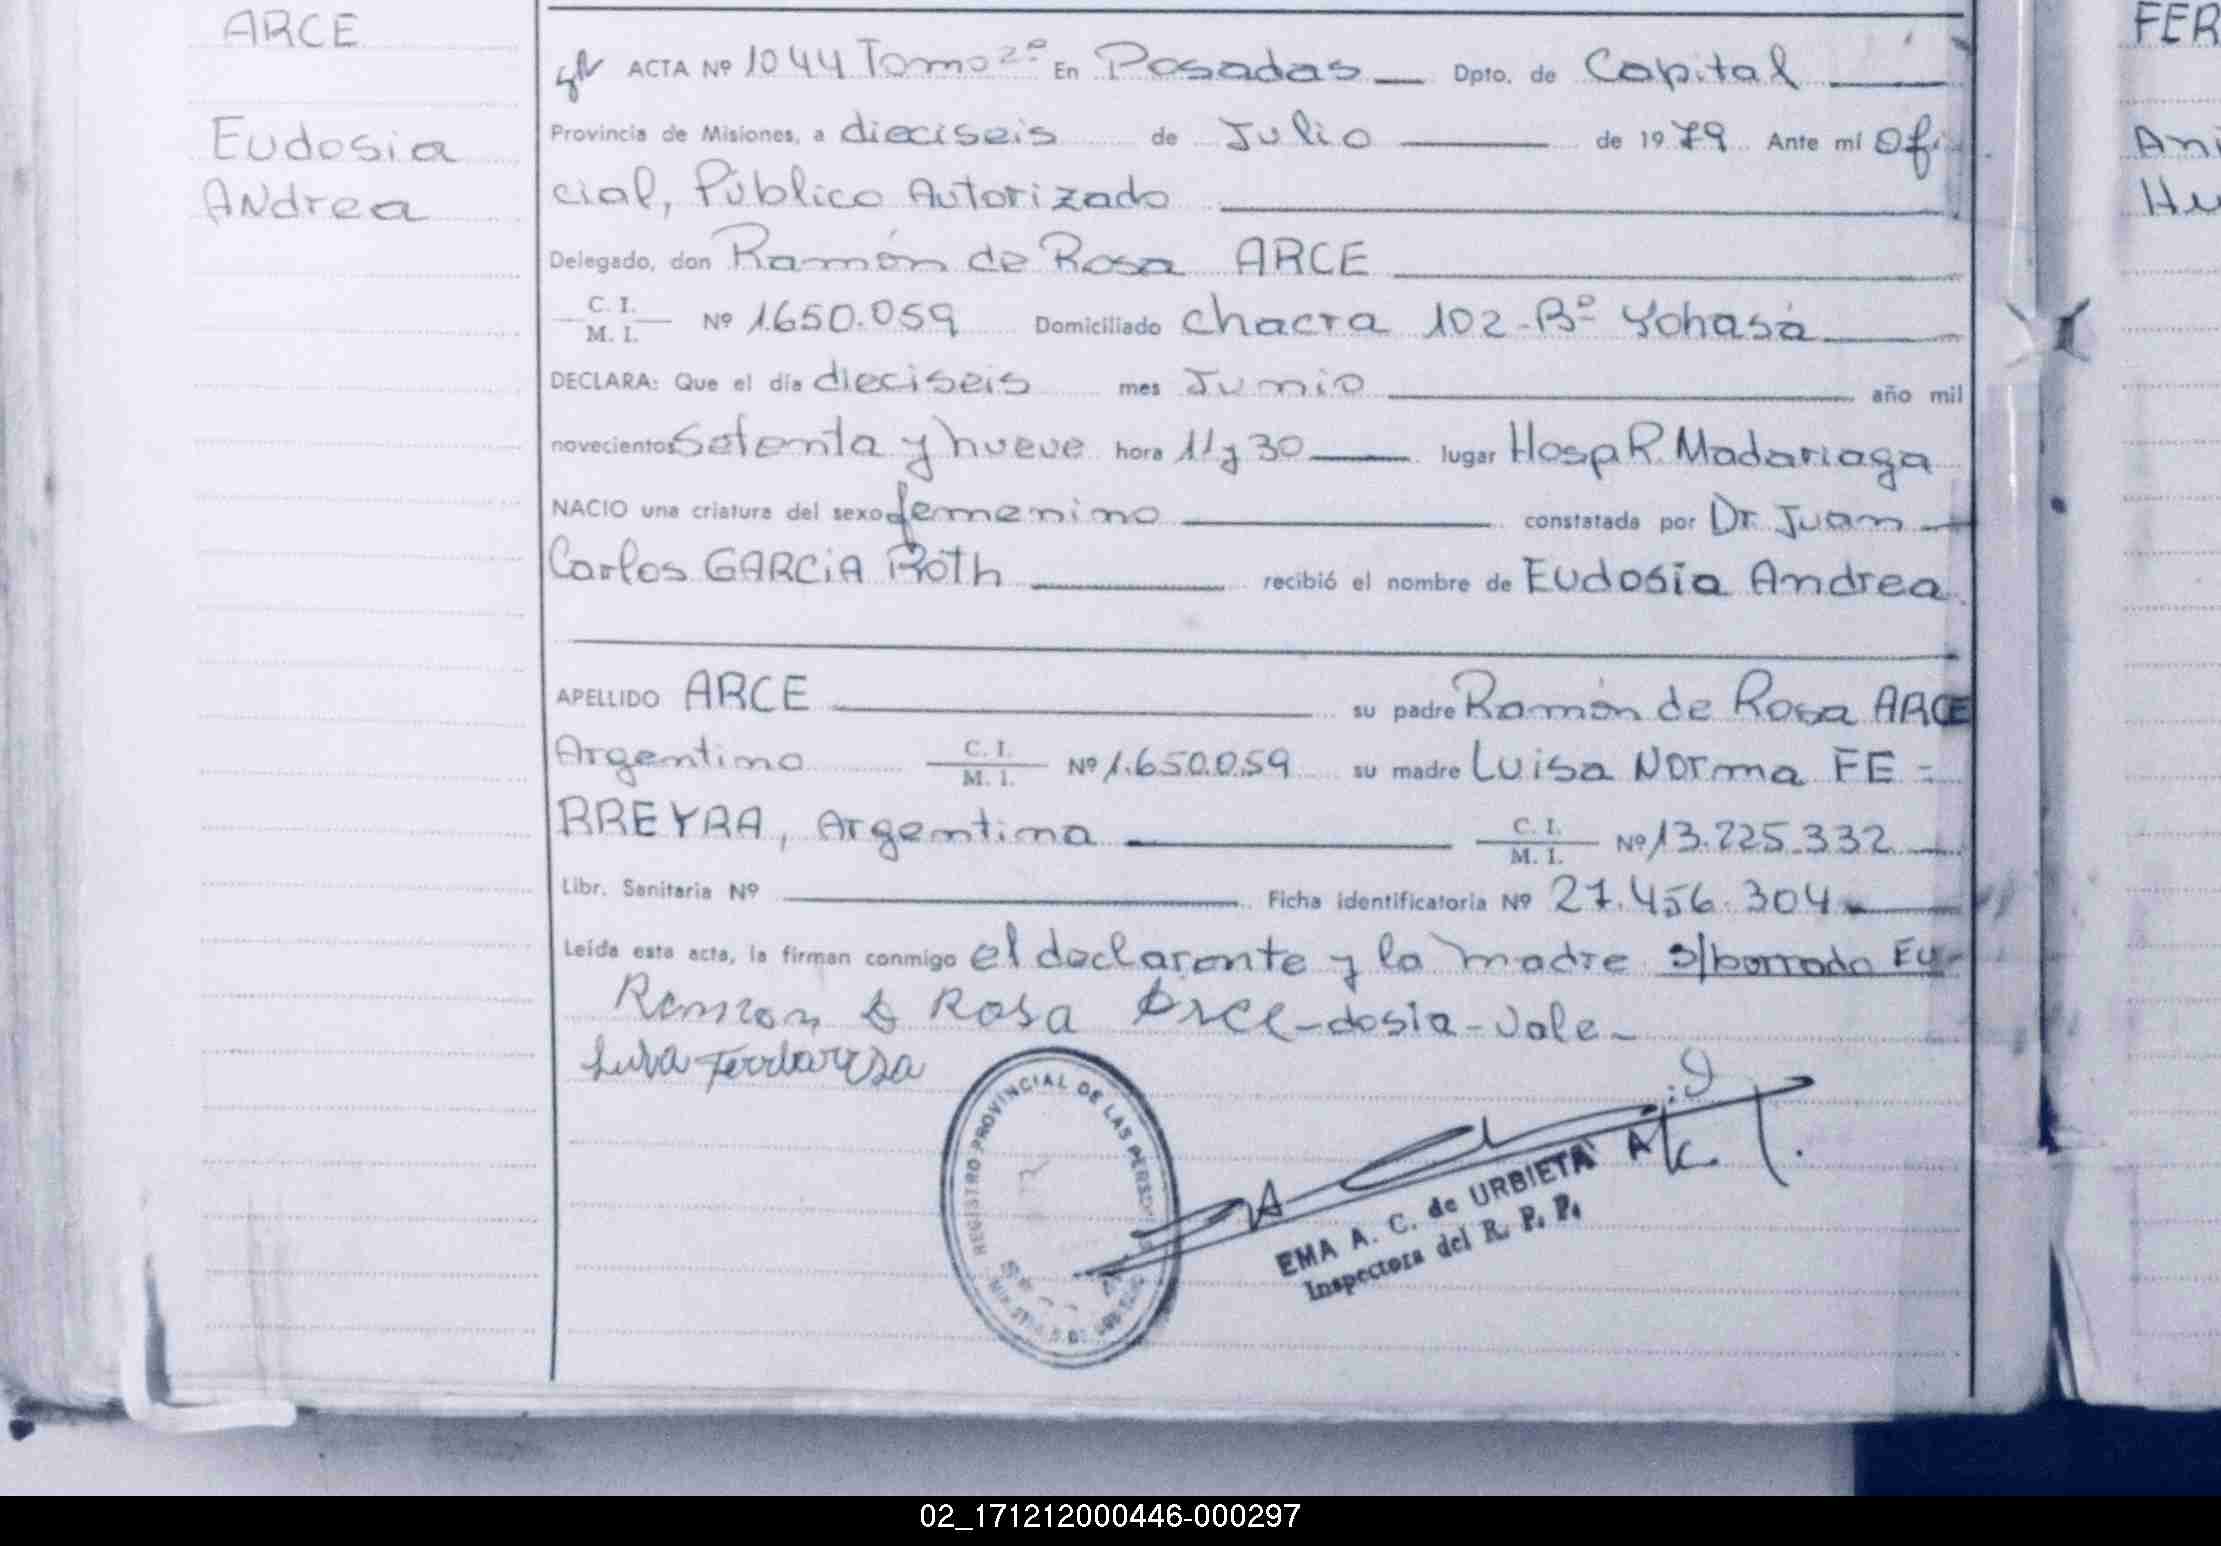 ARCE
Eudosia
Andrea
ACTA Nº 1044 Tomo 2º En Posadas Dpto. de Capital
Provincia de Misiones, a dieciseis de Julio de 1979 Ante mí Ofi
cial, Público Autorizado
Delegado, don Ramón de Rosa ARCE
C. I.
M. I. Nº 1.650.059 Domiciliado chacra 102 - Bº Yohasá
DECLARA: Que el día dieciseis mes Junio año mil
novecientos Setenta y nueve hora 11 y 30 lugar Hosp R. Madariaga
NACIO una criatura del sexo femenino constatada por Dr. Juan
Carlos GARCIA ROTH recibió el nombre de Eudosia Andrea
APELLIDO ARCE su padre Ramón de Rosa ARCE
Argentino C. I.
M. I. Nº 1.650.059 su madre Luisa Norma FE -
RREYRA, Argentina C. I.
M. I. Nº 13.225.332
Libr. Sanitaria Nº Ficha identificatoria Nº 27.456.304
Leída esta acta, la firman conmigo el declarante y la madre s/borrado Eu-
Ramon d Rosa Arce -dosia- Vale -
REGISTRO PROVINCIAL DE LAS PERSO
EMA A. C. de URBIETA
Inspectora del R. P. P.
FER
Ani
Hu
02_171212000446-000297